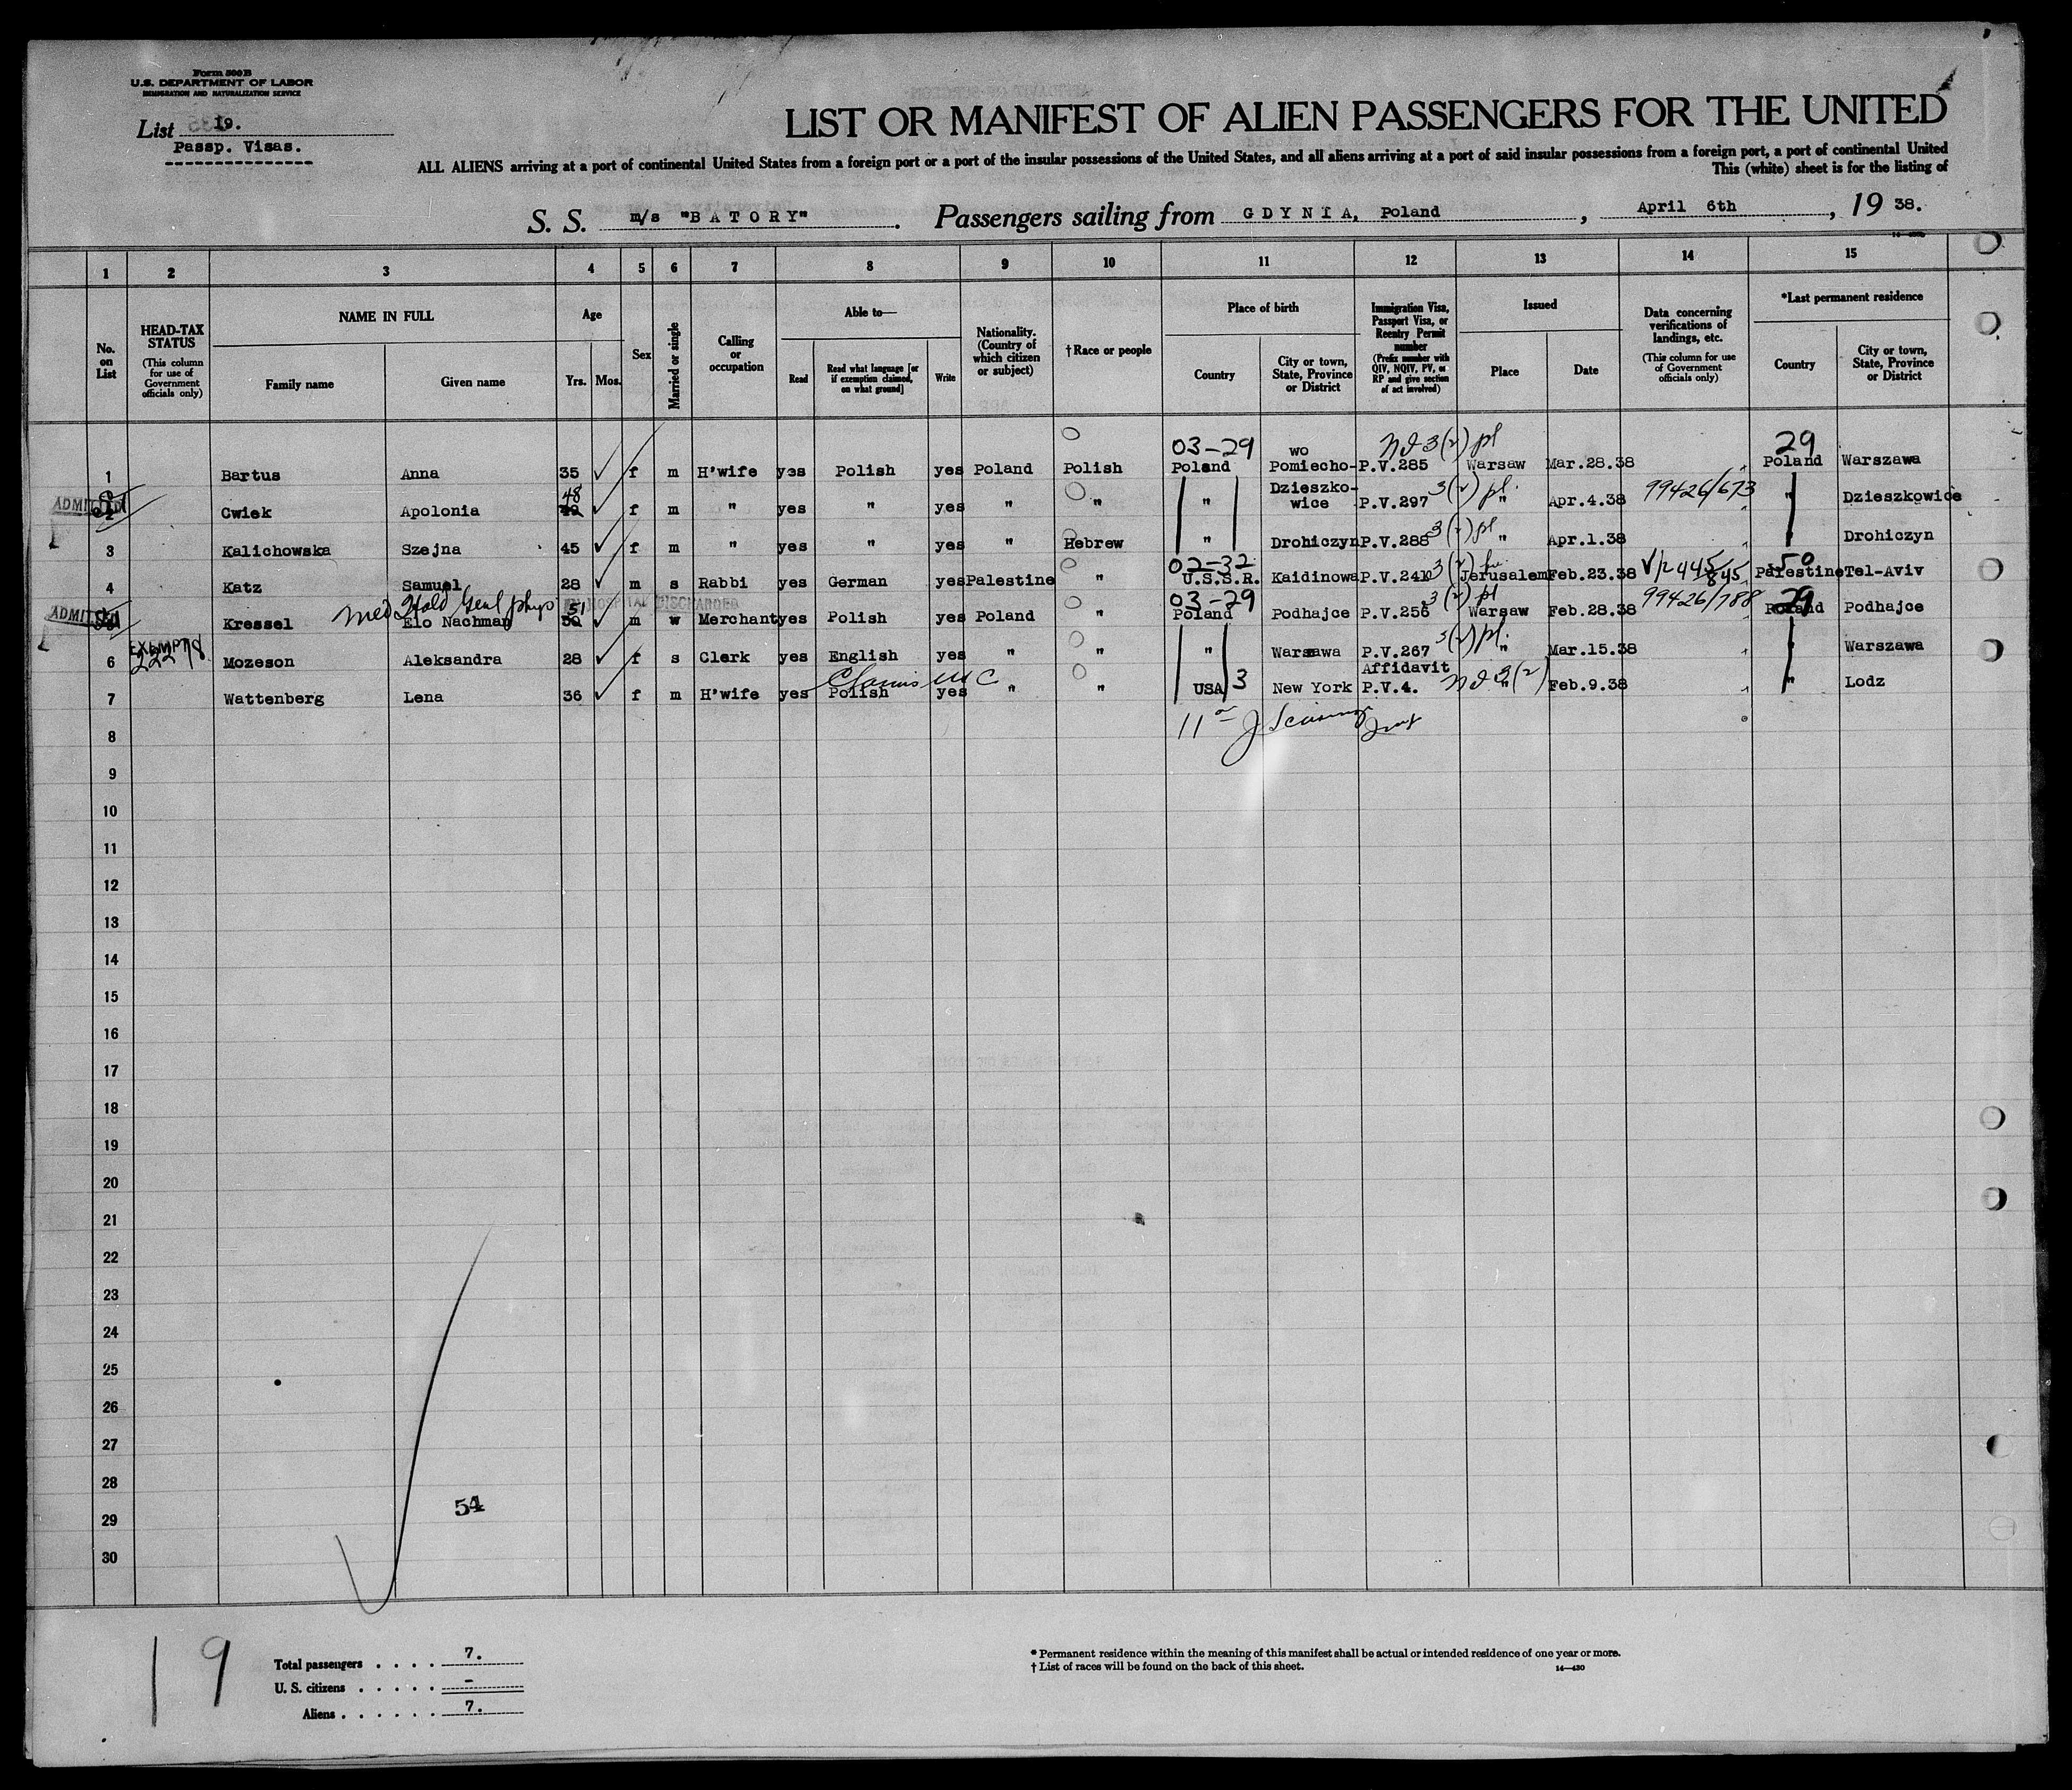 Form 500 B
U.S. DEPARTMENT OF LABOR
IMMIGRATION AND NATURALIZATION SERVICE
List 19.
Passp. Visas.
LIST OR MANIFEST OF ALIEN PASSENGERS FOR THE UNITED
ALL ALIENS arriving at a port of continental United States from a foreign port or a port of the insular possessions of the United States, and all aliens arriving at a port of said insular possessions from a foreign port, a port of continental United
This (white) sheet is for the listing of
S. S. m/s "BATORY". Passengers sailing from GDYNIA, Poland, April 6th, 19 38.
1 2 3 4 5 6 7 8 9 10 11 12 13 14 15
No. on List
HEAD-TAX STATUS
(This column for use of Government officials only)
NAME IN FULL
Family name Given name
Age
Yrs. Mos.
Sex
Married or single
Calling or occupation
Able to—
Read
Read what language [or if exemption claimed, on what ground]
Write
Nationality. (Country of which citizen or subject)
†Race or people
Place of birth
Country
City or town, State, Province or District
Immigration Visa, Passport Visa, or Reentry Permit number
(Prefix number with QIV, NQIV, PV, or RP and give section of act involved)
Issued
Place Date
Data concerning verifications of landings, etc.
(This column for use of Government officials only)
*Last permanent residence
Country
City or town, State, Province or District
03-29 wo 3(2) pl 29
1 Bartus Anna 35 f m H'wife yes Polish yes Poland Polish Poland Pomiecho- P.V.285 Warsaw Mar.28.38 Poland Warszawa
48 Dzieszko- 3(2) pl. 99426/673
ADMITTED 2 Cwiek Apolonia f m " yes " yes " " " wice P.V.297 " Apr.4.38 " Dzieszkowice
3(2) pl
3 Kalichowska Szejna 45 f m " yes " yes " Hebrew " Drohiczyn P.V.288 " Apr.1.38 Drohiczyn
02-32 3(2) V/2445/845 50
4 Katz Samuel 28 m s Rabbi yes German yes Palestine " U.S.S.R. Kaidinowa P.V.2410 Jerusalem Feb.23.38 Palestine Tel-Aviv
Med Hold Genl phys 51 HOSPITAL DISCHARGED 03-29 3(2) pl 99426/788 29
ADMITTED 5 Kressel Elo Nachman 50 m w Merchant yes Polish yes Poland " Poland Podhajce P.V.256 Warsaw Feb.28.38 Poland Podhajce
EXEMPT 3(2) pl.
6 Mozeson Aleksandra 28 f s Clerk yes English yes " " " Warsawa P.V.267 " Mar.15.38 " Warszawa
Claims USC Affidavit 3(2)
7 Wattenberg Lena 36 f m H'wife yes Polish yes " " USA 3 New York P.V.4. " Feb.9.38 " Lodz
8
9
10
11
12
13
14
15
16
17
18
19
20
21
22
23
24
25
26
27
28
29
30
54
19
Total passengers . . . . 7.
U. S. citizens . . . . . -
Aliens . . . . . . 7.
* Permanent residence within the meaning of this manifest shall be actual or intended residence of one year or more.
† List of races will be found on the back of this sheet. 14—430